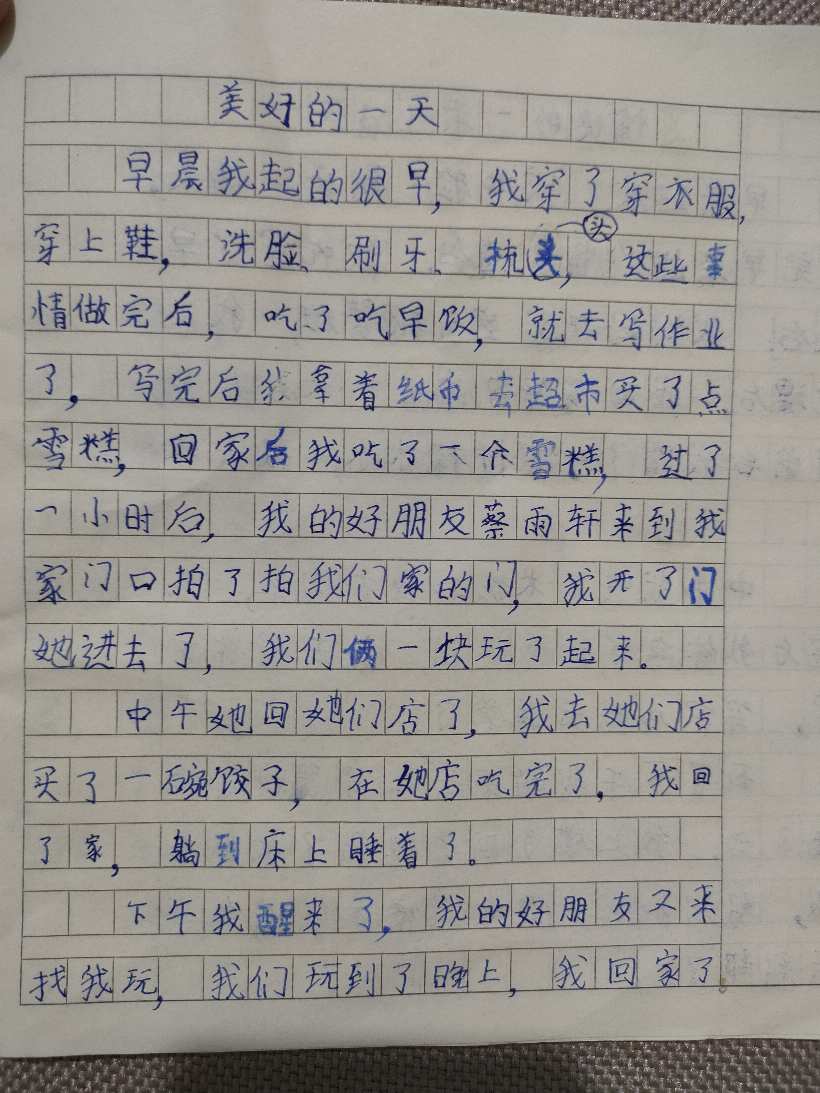 美好的一天
早晨我起的很早，我穿了穿衣服，
穿上鞋，洗脸、刷牙、梳头，这些事
情做完后，吃了吃早饭，就去写作业
了，写完后我拿着纸币去超市买了点
雪糕，回家后我吃了一个雪糕，过了
一小时后，我的好朋友蔡雨轩来到我
家门口拍了拍我们家的门，我开了门
她进去了，我们俩一块玩了起来。
中午她回她们店了，我去她们店
买了一碗饺子，在她店吃完了，我回
了家，躺到床上睡着了。
下午我醒来了，我的好朋友又来
找我玩，我们玩到了晚上，我回家了。